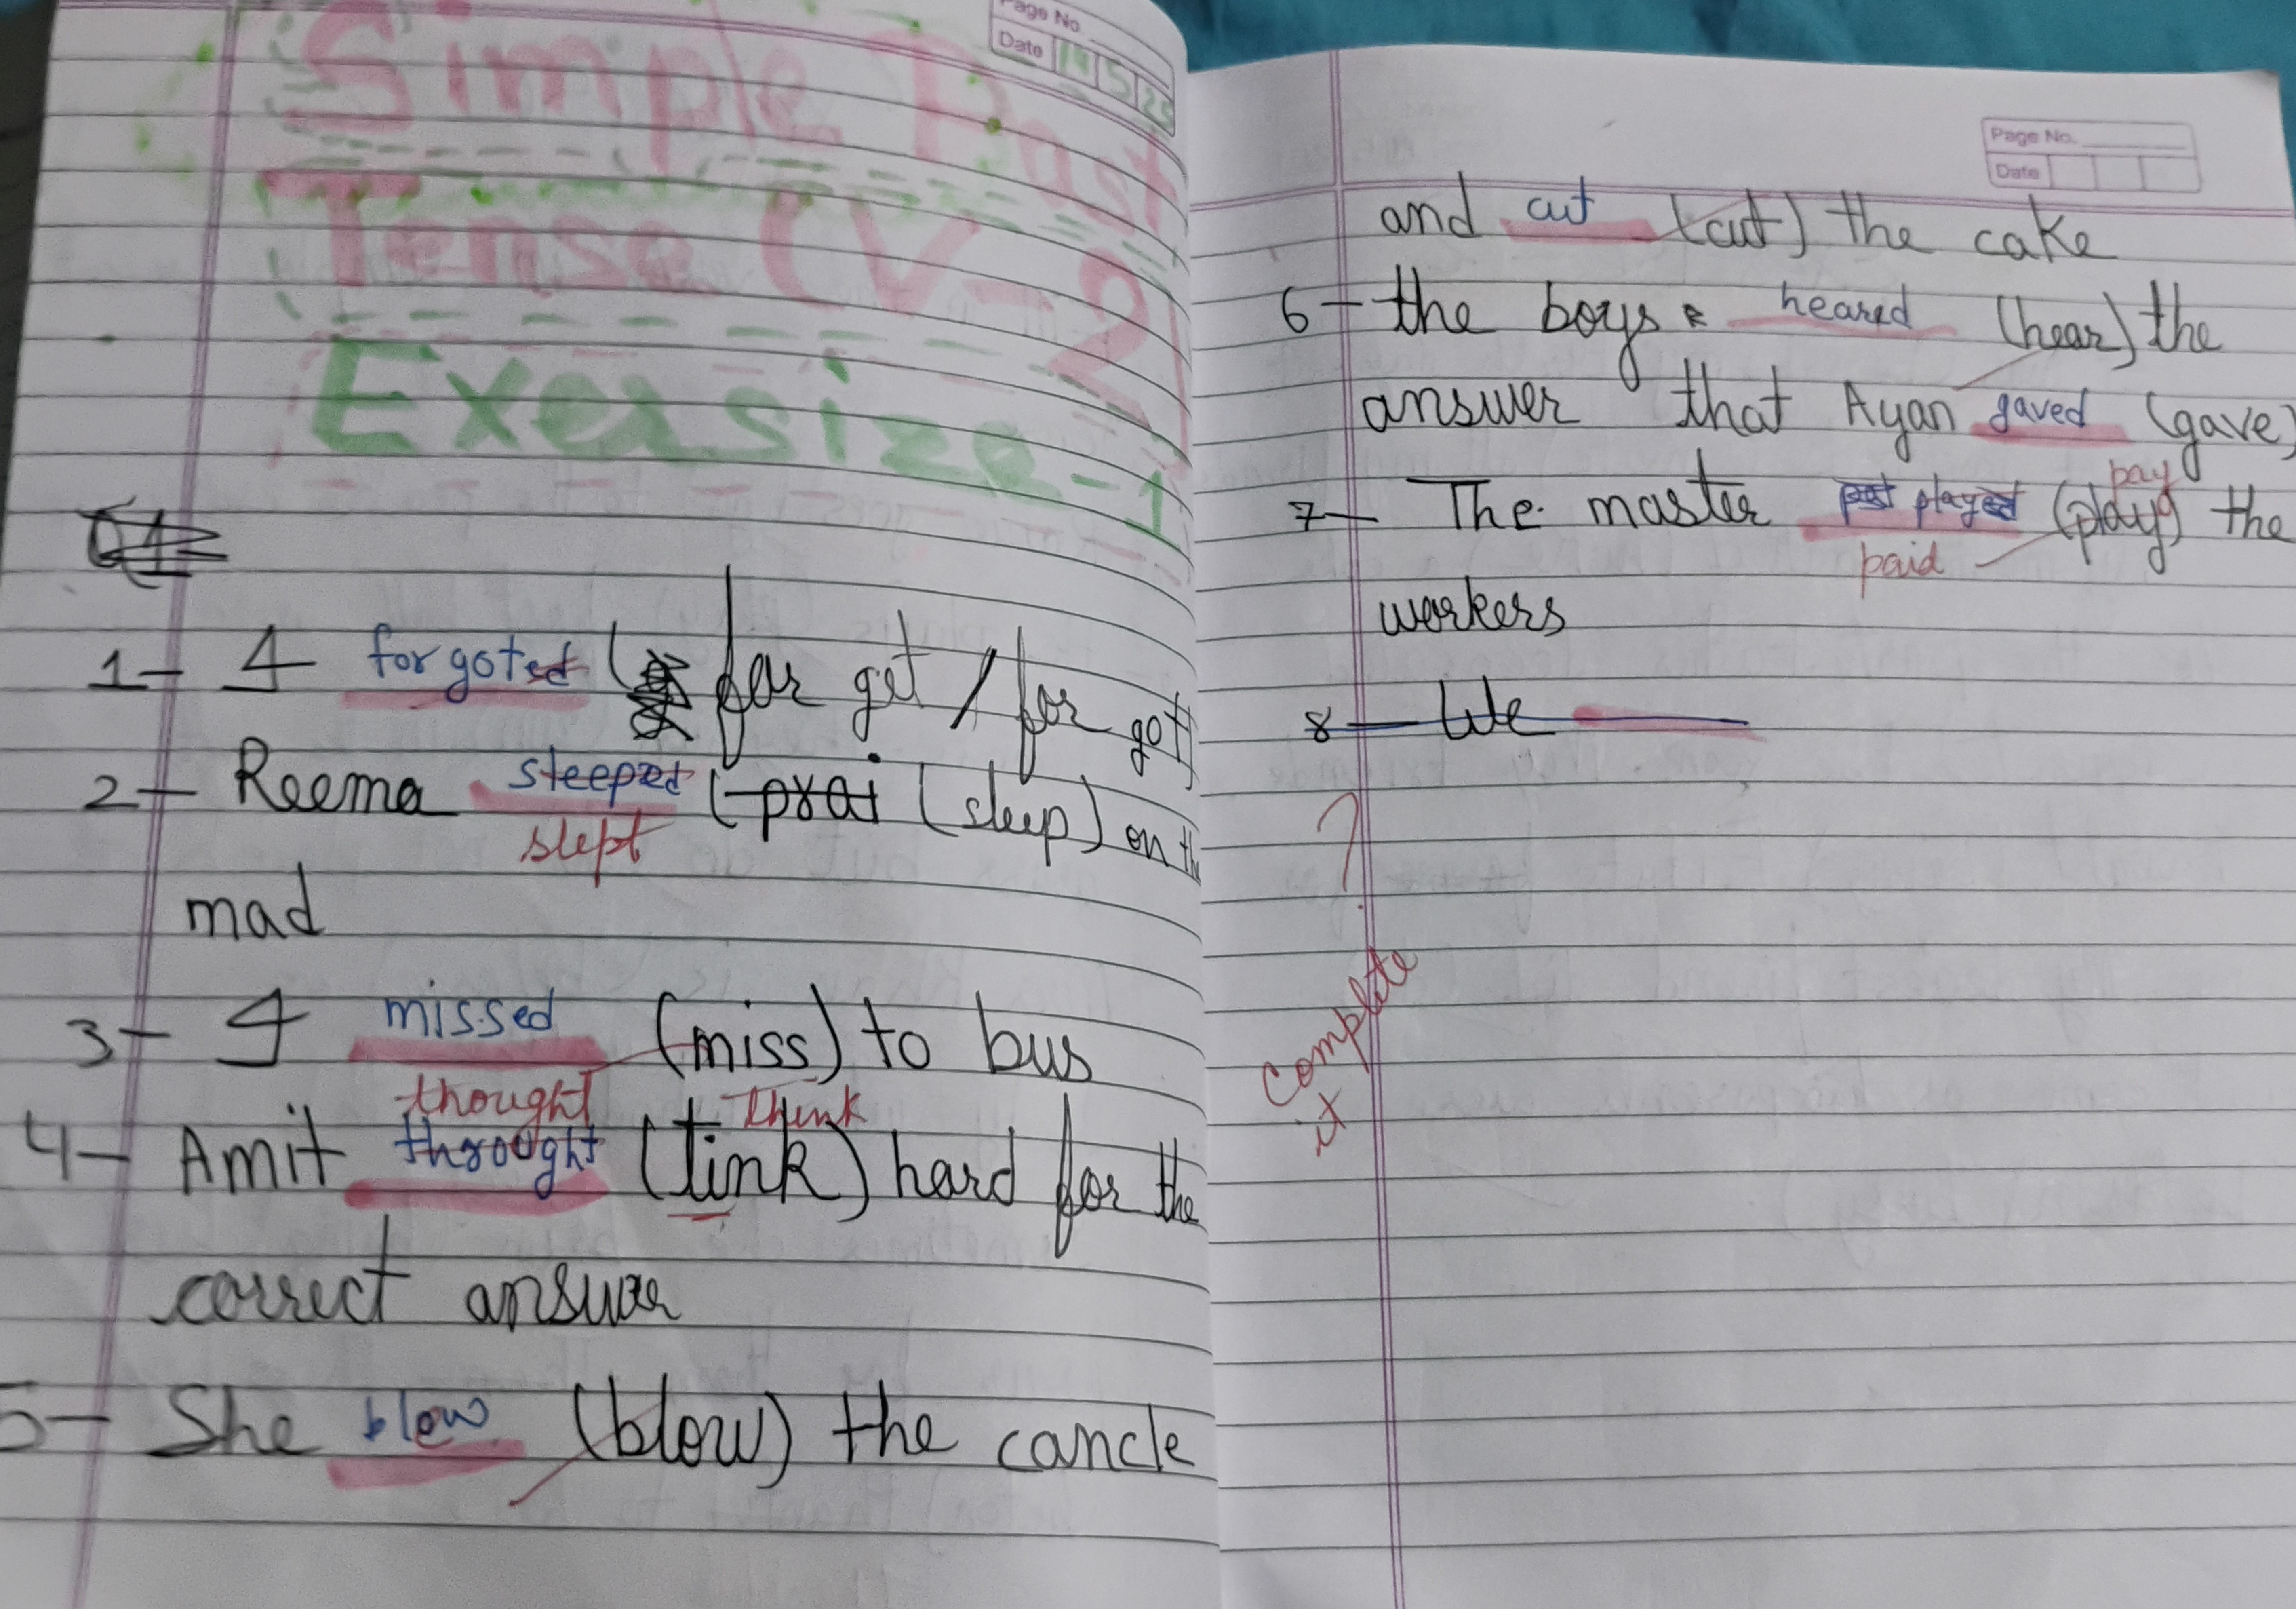 Page No.
Date 19 5 25
Simple Past
Tense (V-2)
Exersize-1
1- I forgoted (for get / for got)
2- Reema sleeped (prai (sleep) on the
slept
mad
3- I missed (miss) to bus
thought think
4- Amit throught (tink) hard for the
correct answer
5- She blew (blow) the cancle
Page No.
Date
and cut (cut) the cake
6- the boys heared (hear) the
answer that Ayan gaved (gave)
pay
7- The master played (play) the
paid
workers
8- We
?
Complete
it